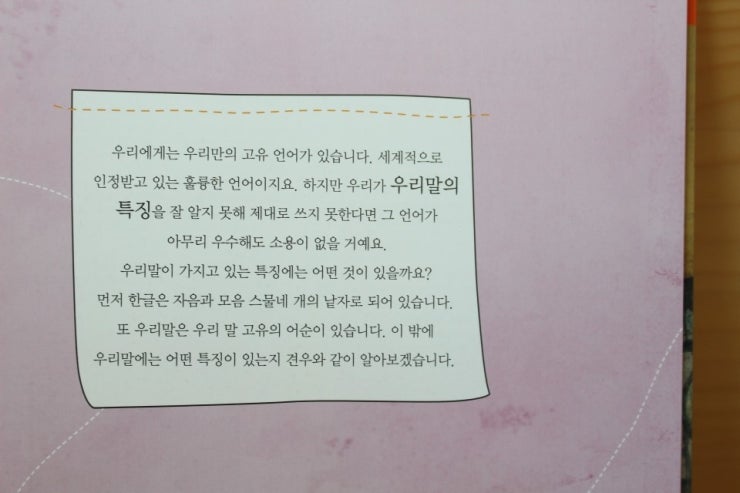 우리에게는 우리만의 고유 언어가 있습니다. 세계적으로
인정받고 있는 훌륭한 언어이지요. 하지만 우리가 우리말의
특징을 잘 알지 못해 제대로 쓰지 못한다면 그 언어가
아무리 우수해도 소용이 없을 거예요.
우리말이 가지고 있는 특징에는 어떤 것이 있을까요?
먼저 한글은 자음과 모음 스물네 개의 낱자로 되어 있습니다.
또 우리말은 우리 말 고유의 어순이 있습니다. 이 밖에
우리말에는 어떤 특징이 있는지 견우와 같이 알아보겠습니다.